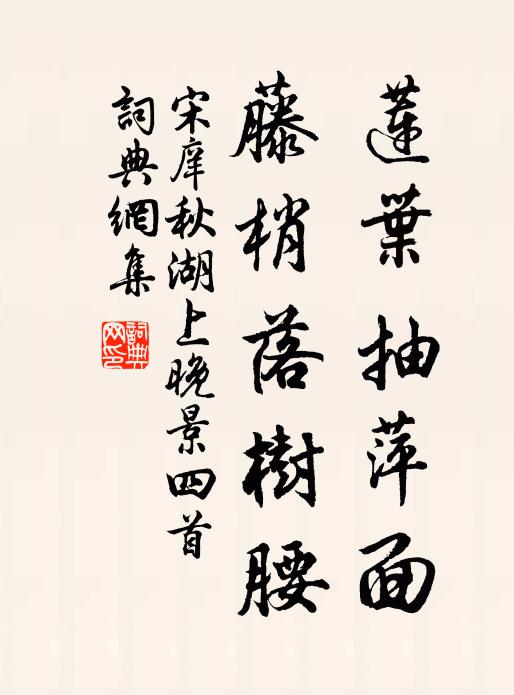 蓮葉抽萍面
藤梢落樹腰
宋庠秋湖上晚景四首
詞典網集
詞典网印